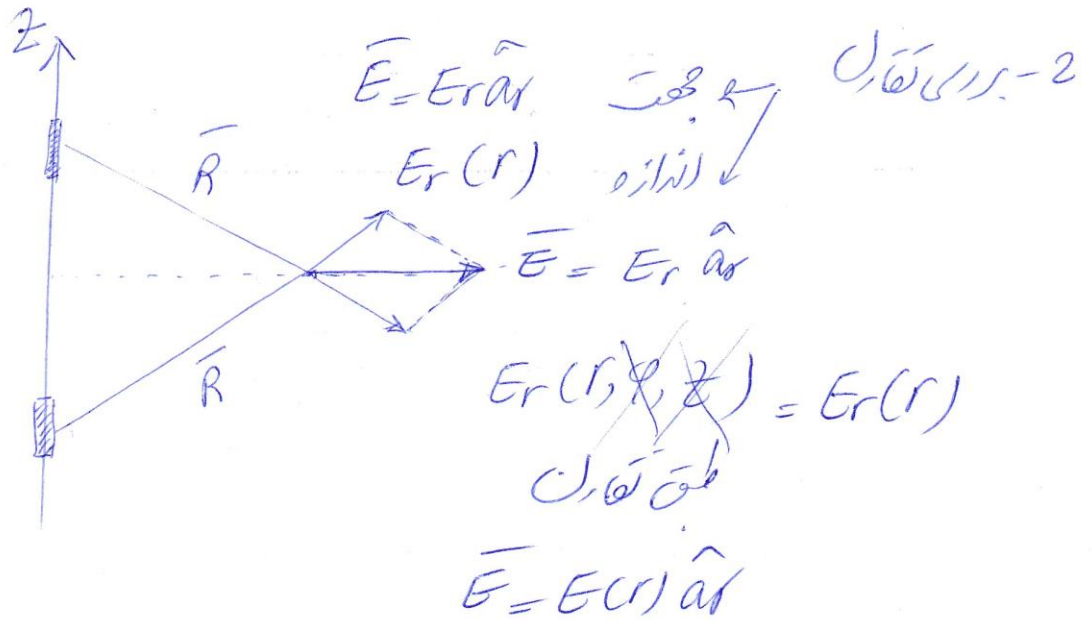 2- بررسی تقارن
جهت → E̅ = Er âr
اندازه Er(r)
Z
R̅
E̅ = Er âr
R̅
Er(r, φ, z) = Er(r)
طبق تقارن
E̅ = E(r) âr